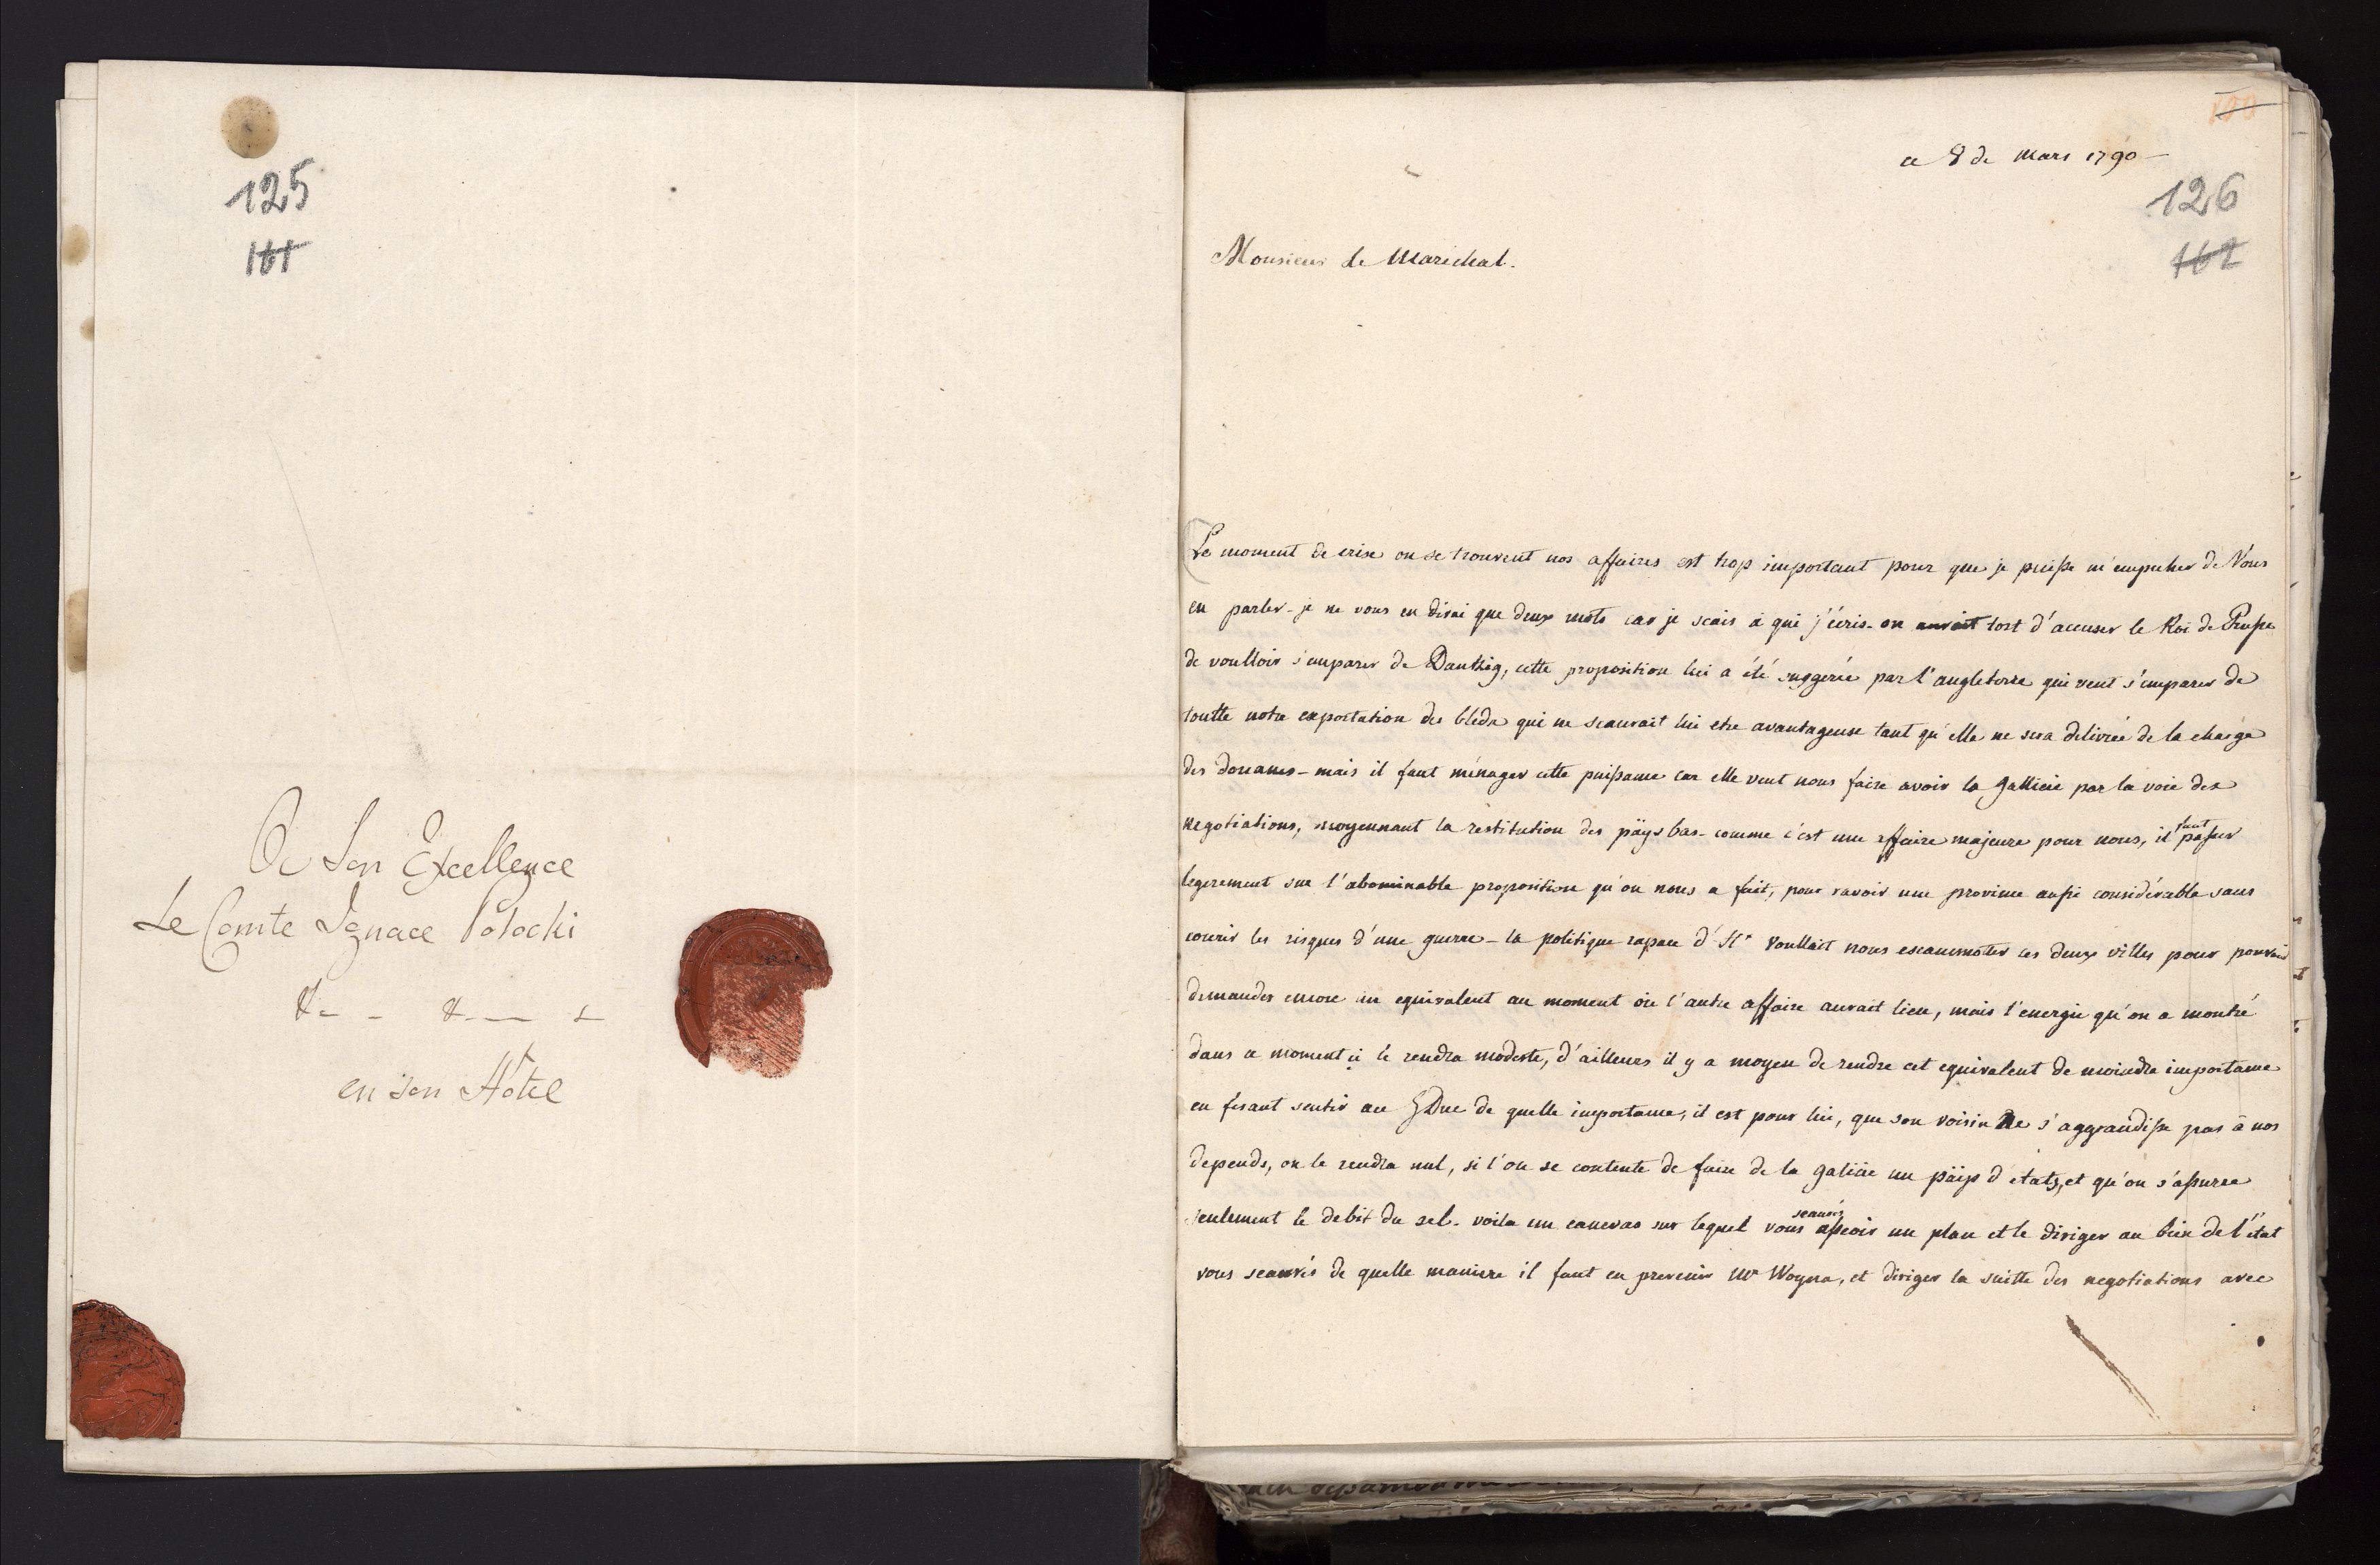 125
101
A Son Excellence
Le Comte Ignace Potocki
&- - &- - -
en son Hôtel
100
ce 8 de Mars 1790 -
126
102
Monsieur le Marechal.
Le moment de crise ou se trouvent nos affaires est trop important pour que je puisse m'empecher de Vous
en parler - je ne vous en dirai que deux mots car je scais à qui j'écris - on auroit tort d'accuser le Roi de Prusse
de voulloir s'emparer de Dantzig, cette proposition lui a été suggerée par l'angleterre qui veut s'emparer de
toutte notre exportation des bleds qui ne scauroit lui etre avantageuse tant qu'elle ne sera delivrée de la charge
des douanes - mais il faut ménager cette puissance car elle veut nous faire avoir la Gallicie par la voie des
negotiations, moyennant la restitution des päys bas - comme c'est une affaire majeure pour nous, il faut passer
legerement sur l'abominable proposition qu'on nous a fait, pour ravoir une province aussi considérable sans
courir les risques d'une guerre - la politique rapace d'H. voullait nous escammoter ces deux villes pour pouvoir
demander encore un equivalent au moment où l'autre affaire aurait lieu, mais l'energie qu'on a montré
dans ce moment ci le rendra modeste, d'ailleurs il y a moyen de rendre cet equivalent de moindre importance
en fesant sentir au GDuc de quelle importance, il est pour lui, que son voisin ne s'aggrandisse pas à nos
depends, on le rendra nul, si l'on se contente de faire de la galicie un päys d'etats, et qu'on s'assuree
seulement le debit du sel - voila un canevas sur lequel vous scaurés asseoir un plan et le diriger au bien de l'état
vous scaurés de quelle maniere il faut en prevenir Mr Woyna, et diriger la suitte des negotiations avec